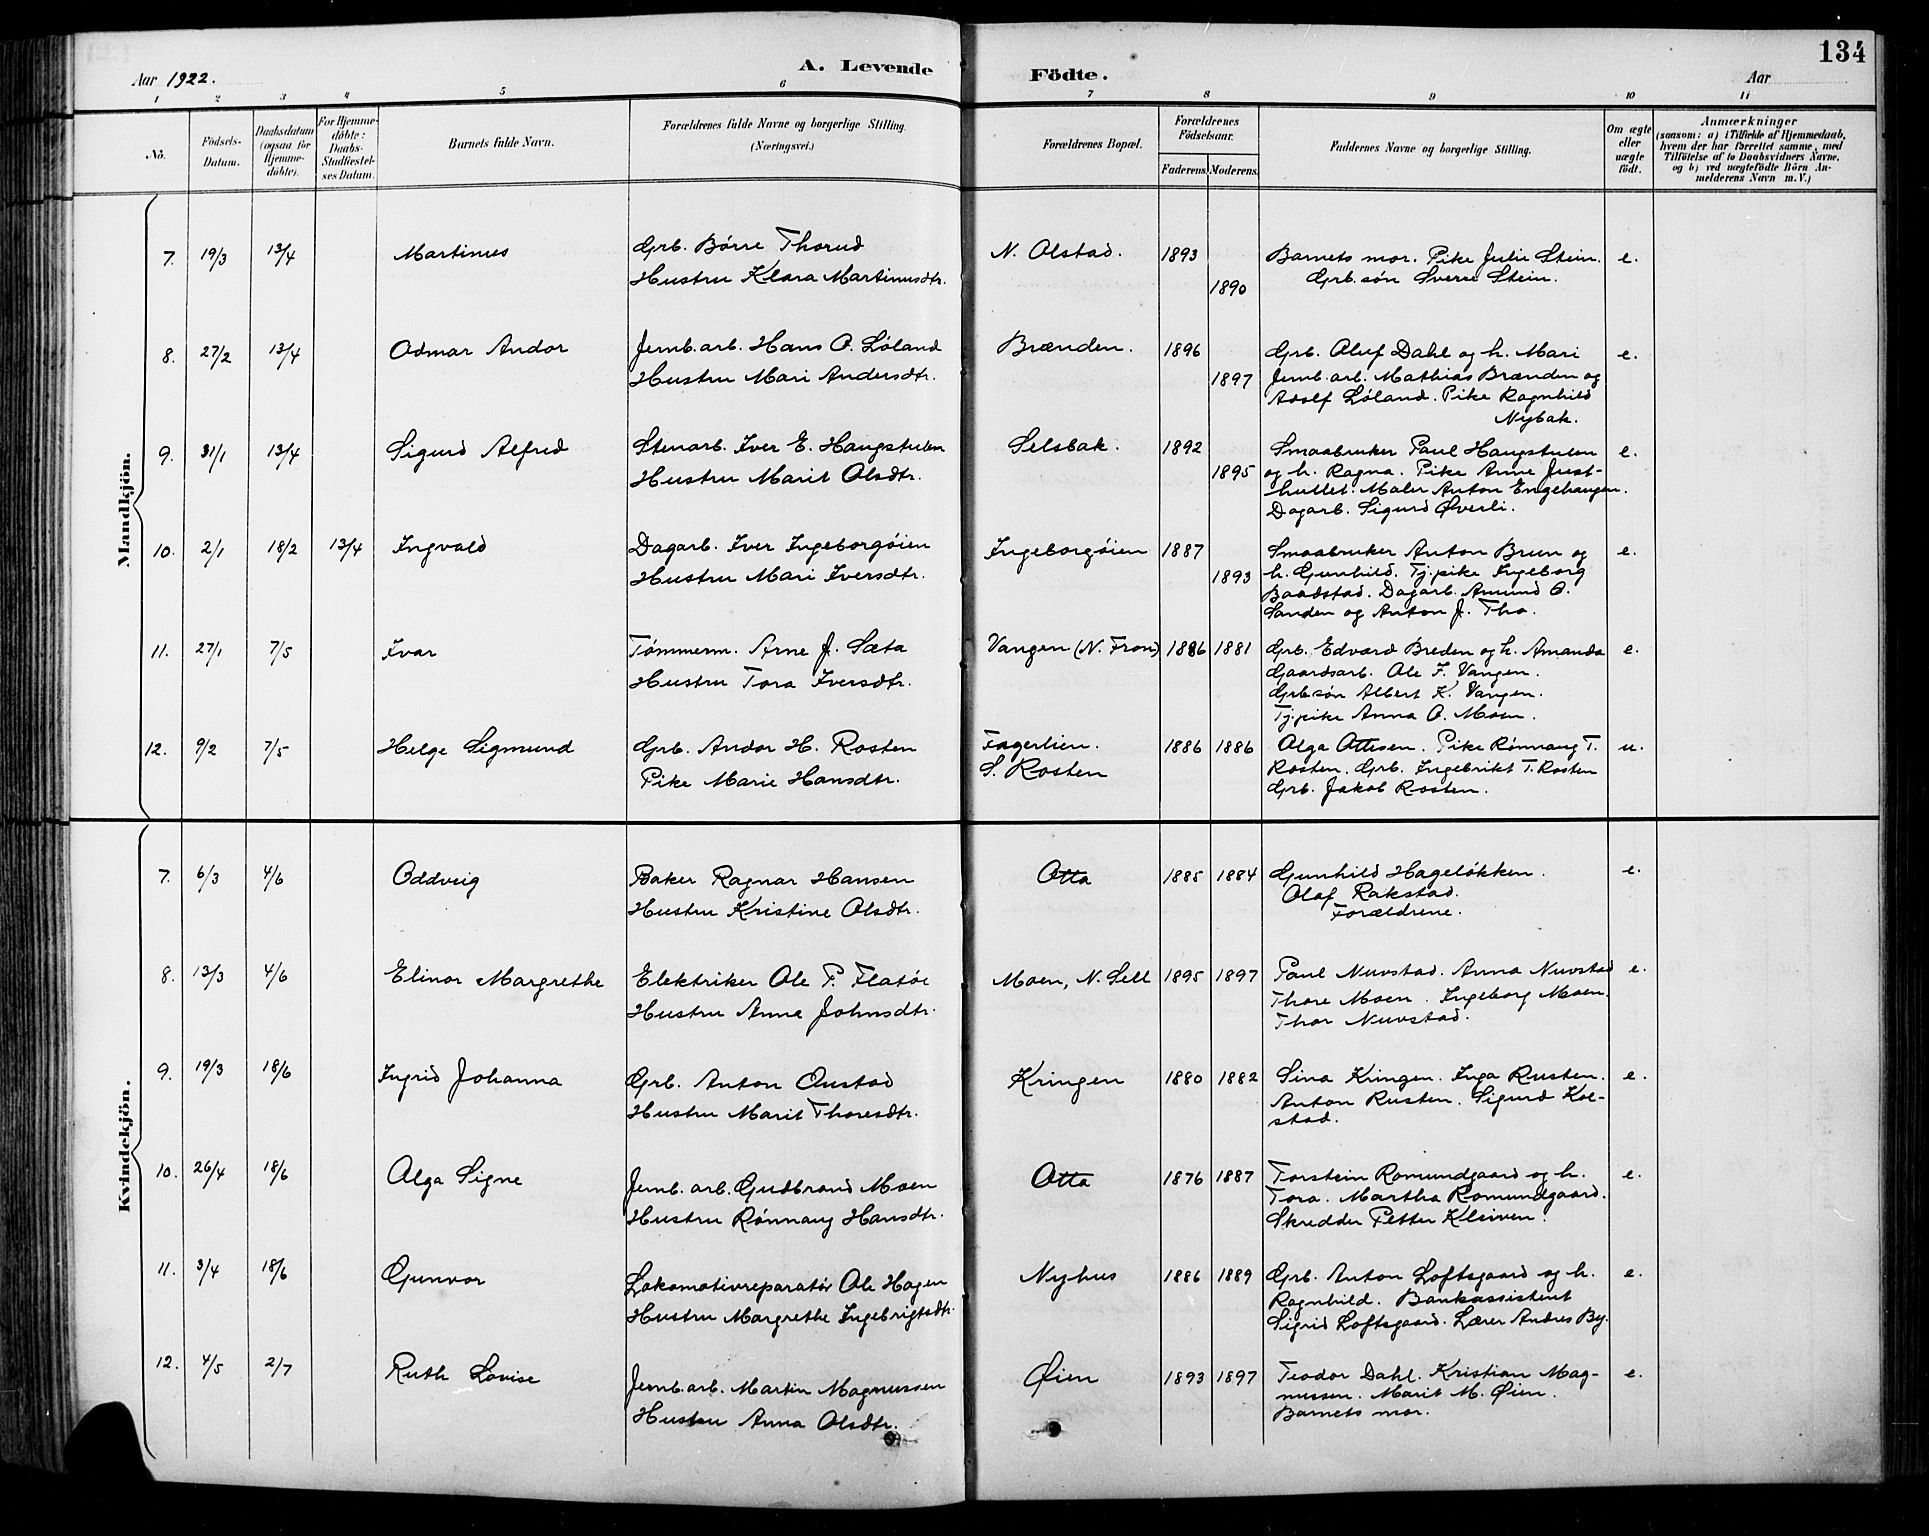 134
Aar 1922.
A. Levende
Födte.
Aar
1 2 3 4 5 6 7 8 9 10 11
No.
Födsels-Datum.
Daabsdatum (ogsaa for Hjemme-döbte).
For Hjemme-döbte: Daabs-Stadfæstel-ses Datum.
Barnets fulde Navn.
Forældrenes fulde Navne og borgerlige Stilling. (Næringsvei.)
Forældrenes Bopæl.
Forældrenes Födselsaar.
Faderens. Moderens.
Faddernes Navne og borgerlige Stilling.
Om ægte eller uægte födt.
Anmærkninger
(saasom: a) i Tilfælde af Hjemmedaab,
hvem der har forrettet samme, med
Tilföielse af to Daabsvidners Navne,
og b) ved uægtefödte Börn An-
melderens Navn m. V.)
Mandkjön.
7. 19/3 13/4 Martinus Grb. Børre Thorud N. Olstad. 1893 Barnets mor. Pike Julie Stein. e.
Hustru Klara Martinusdtr. 1890 Grb.søn Sverre Stein.
8. 27/2 13/4 Odmar Andor Jernb.arb. Hans O. Løland Brænden. 1896 Grb. Oluf Dahl og h. Mari e.
Hustru Mari Andersdtr. 1897 Jernb.arb. Mathias Brænden og
Adolf Løland. Pike Ragnhild
Nybak.
9. 31/1 13/4 Sigurd Alfred Stenarb. Iver E. Haugstulen Selsbak. 1892 Smaabruker Paul Haugstulen e.
Hustru Marit Olsdtr. 1895 og h. Ragna. Pike Anne Just-
hullet. Maler Anton Engehaugen.
Dagarb. Sigurd Øverli.
10. 2/1 18/2 13/4 Ingvald Dagarb. Iver Ingeborgøien Ingeborgøien 1887 Smaabruker Anton Brun og e.
Hustru Mari Iversdtr. 1893 h. Gunhild. Tj.pike Ingeborg
Baadstad. Dagarb. Amund O.
Sanden og Anton J. Tho.
11. 27/1 7/5 Ivar Tømmerm. Arne J. Sæta Vangen (N. Fron) 1886 1881 Grb. Edvard Breden og h. Amanda e.
Hustru Tora Iversdtr. Gaardsarb. Ole F. Vangen.
Grb.søn Albert K. Vangen.
Tj.pike Anna O. Moen.
12. 9/2 7/5 Helge Sigmund Grb. Andor H. Rosten Fagerlien. 1886 1886 Olga Ottesen. Pike Rønnaug T. u.
Pike Marie Hansdtr. S. Rosten Rosten. Grb. Ingebrikt T. Rosten
Grb. Jakob Rosten.
Kvindekjön.
7. 6/3 4/6 Oddveig Baker Ragnar Hansen Otta 1885 1884 Gunhild Hageløkken. e.
Hustru Kristine Olsdtr. Olaf Rakstad.
Forældrene.
8. 13/3 4/6 Elinor Margrethe Elektriker Ole P. Flatøi Moen, N. Sell 1895 1897 Paul Nuvstad. Anna Nuvstad e.
Hustru Anna Johnsdtr. Thore Moen. Ingeborg Moen.
Thor Nuvstad.
9. 19/3 18/6 Ingrid Johanna Grb. Anton Onstad Kringen 1880 1882 Sina Kringen. Inga Rusten. e.
Hustru Marit Thoresdtr. Anton Rusten. Sigurd Kol-
stad.
10. 26/4 18/6 Olga Signe Jernb.arb. Gudbrand Moen Otta 1876 1887 Torstein Romundgaard og h. e.
Hustru Rønnaug Hansdtr. Tora. Martha Romundgaard.
Skredder Petter Kleiven.
11. 3/4 18/6 Gunvor Lokomotivreparatør Ole Hagen Nyhus 1886 1889 Grb. Anton Loftsgaard og h. e.
Hustru Margrethe Ingebrigtsdtr. Ragnhild. Bankassistent
Sigrid Loftsgaard. Lærer Andres By.
12. 4/5 2/7 Ruth Lovise Jernb.arb. Martin Magnussen Øien 1893 1897 Teodor Dahl. Kristian Mag- e.
Hustru Anna Olsdtr. nussen. Marit M. Øien.
Barnets mor.